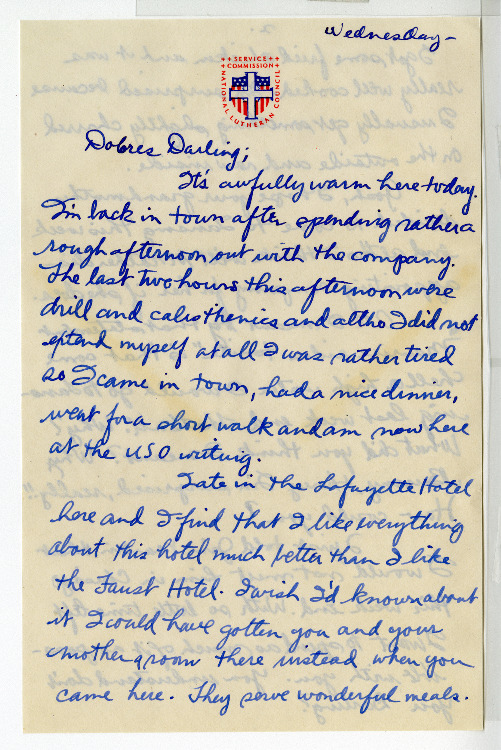 Wednesday-
SERVICE
COMMISSION
NATIONAL LUTHERAN COUNCIL
Dolores Darling;
It's awfully warm here today.
I'm back in town after spending rather a
rough afternoon out with the company.
The last two hours this afternoon were
drill and calisthenics and altho I did not
extend myself at all I was rather tired
so I came in town, had a nice dinner,
went for a short walk and am now here
at the USO writing.
I ate in the Lafayette Hotel
here and I find that I like everything
about this hotel much better than I like
the Faust Hotel. I wish I'd known about
it I could have gotten you and your
mother a room there instead when you
came here. They serve wonderful meals.